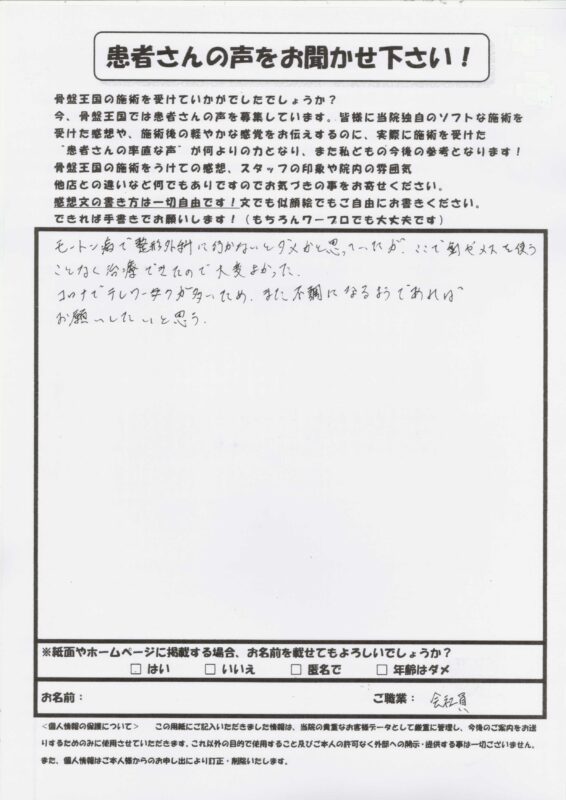 患者さんの声をお聞かせ下さい！
骨盤王国の施術を受けていかがでしたでしょうか？
今、骨盤王国では患者さんの声を募集しています。皆様に当院独自のソフトな施術を
受けた感想や、施術後の軽やかな感覚をお伝えするのに、実際に施術を受けた
“患者さんの率直な声”が何よりの力となり、また私どもの今後の参考となります！
骨盤王国の施術をうけての感想、スタッフの印象や院内の雰囲気
他店との違いなど何でもありですのでお気づきの事をお寄せください。
感想文の書き方は一切自由です！文でも似顔絵でもご自由にお書きください。
できれば手書きでお願いします！（もちろんワープロでも大丈夫です）
モートン病で整形外科に行かないとダメかと思っていたが、ここで剤やメスを使う
ことなく治療できたので大変よかった。
コロナでテレワークが多いため、また不調になるようであれば
お願いしたいと思う。
※紙面やホームページに掲載する場合、お名前を載せてもよろしいでしょうか？
□ はい □ いいえ □ 匿名で □ 年齢はダメ
お名前： ご職業： 会社員
＜個人情報の保護について＞ この用紙にご記入いただきました情報は、当院の貴重なお客様データとして厳重に管理し、今後のご案内をお送
りするためのみに使用させていただきます。これ以外の目的で使用すること及びご本人の許可なく外部への開示・提供する事は一切ございません。
また、個人情報はご本人様からのお申し出により訂正・削除いたします。